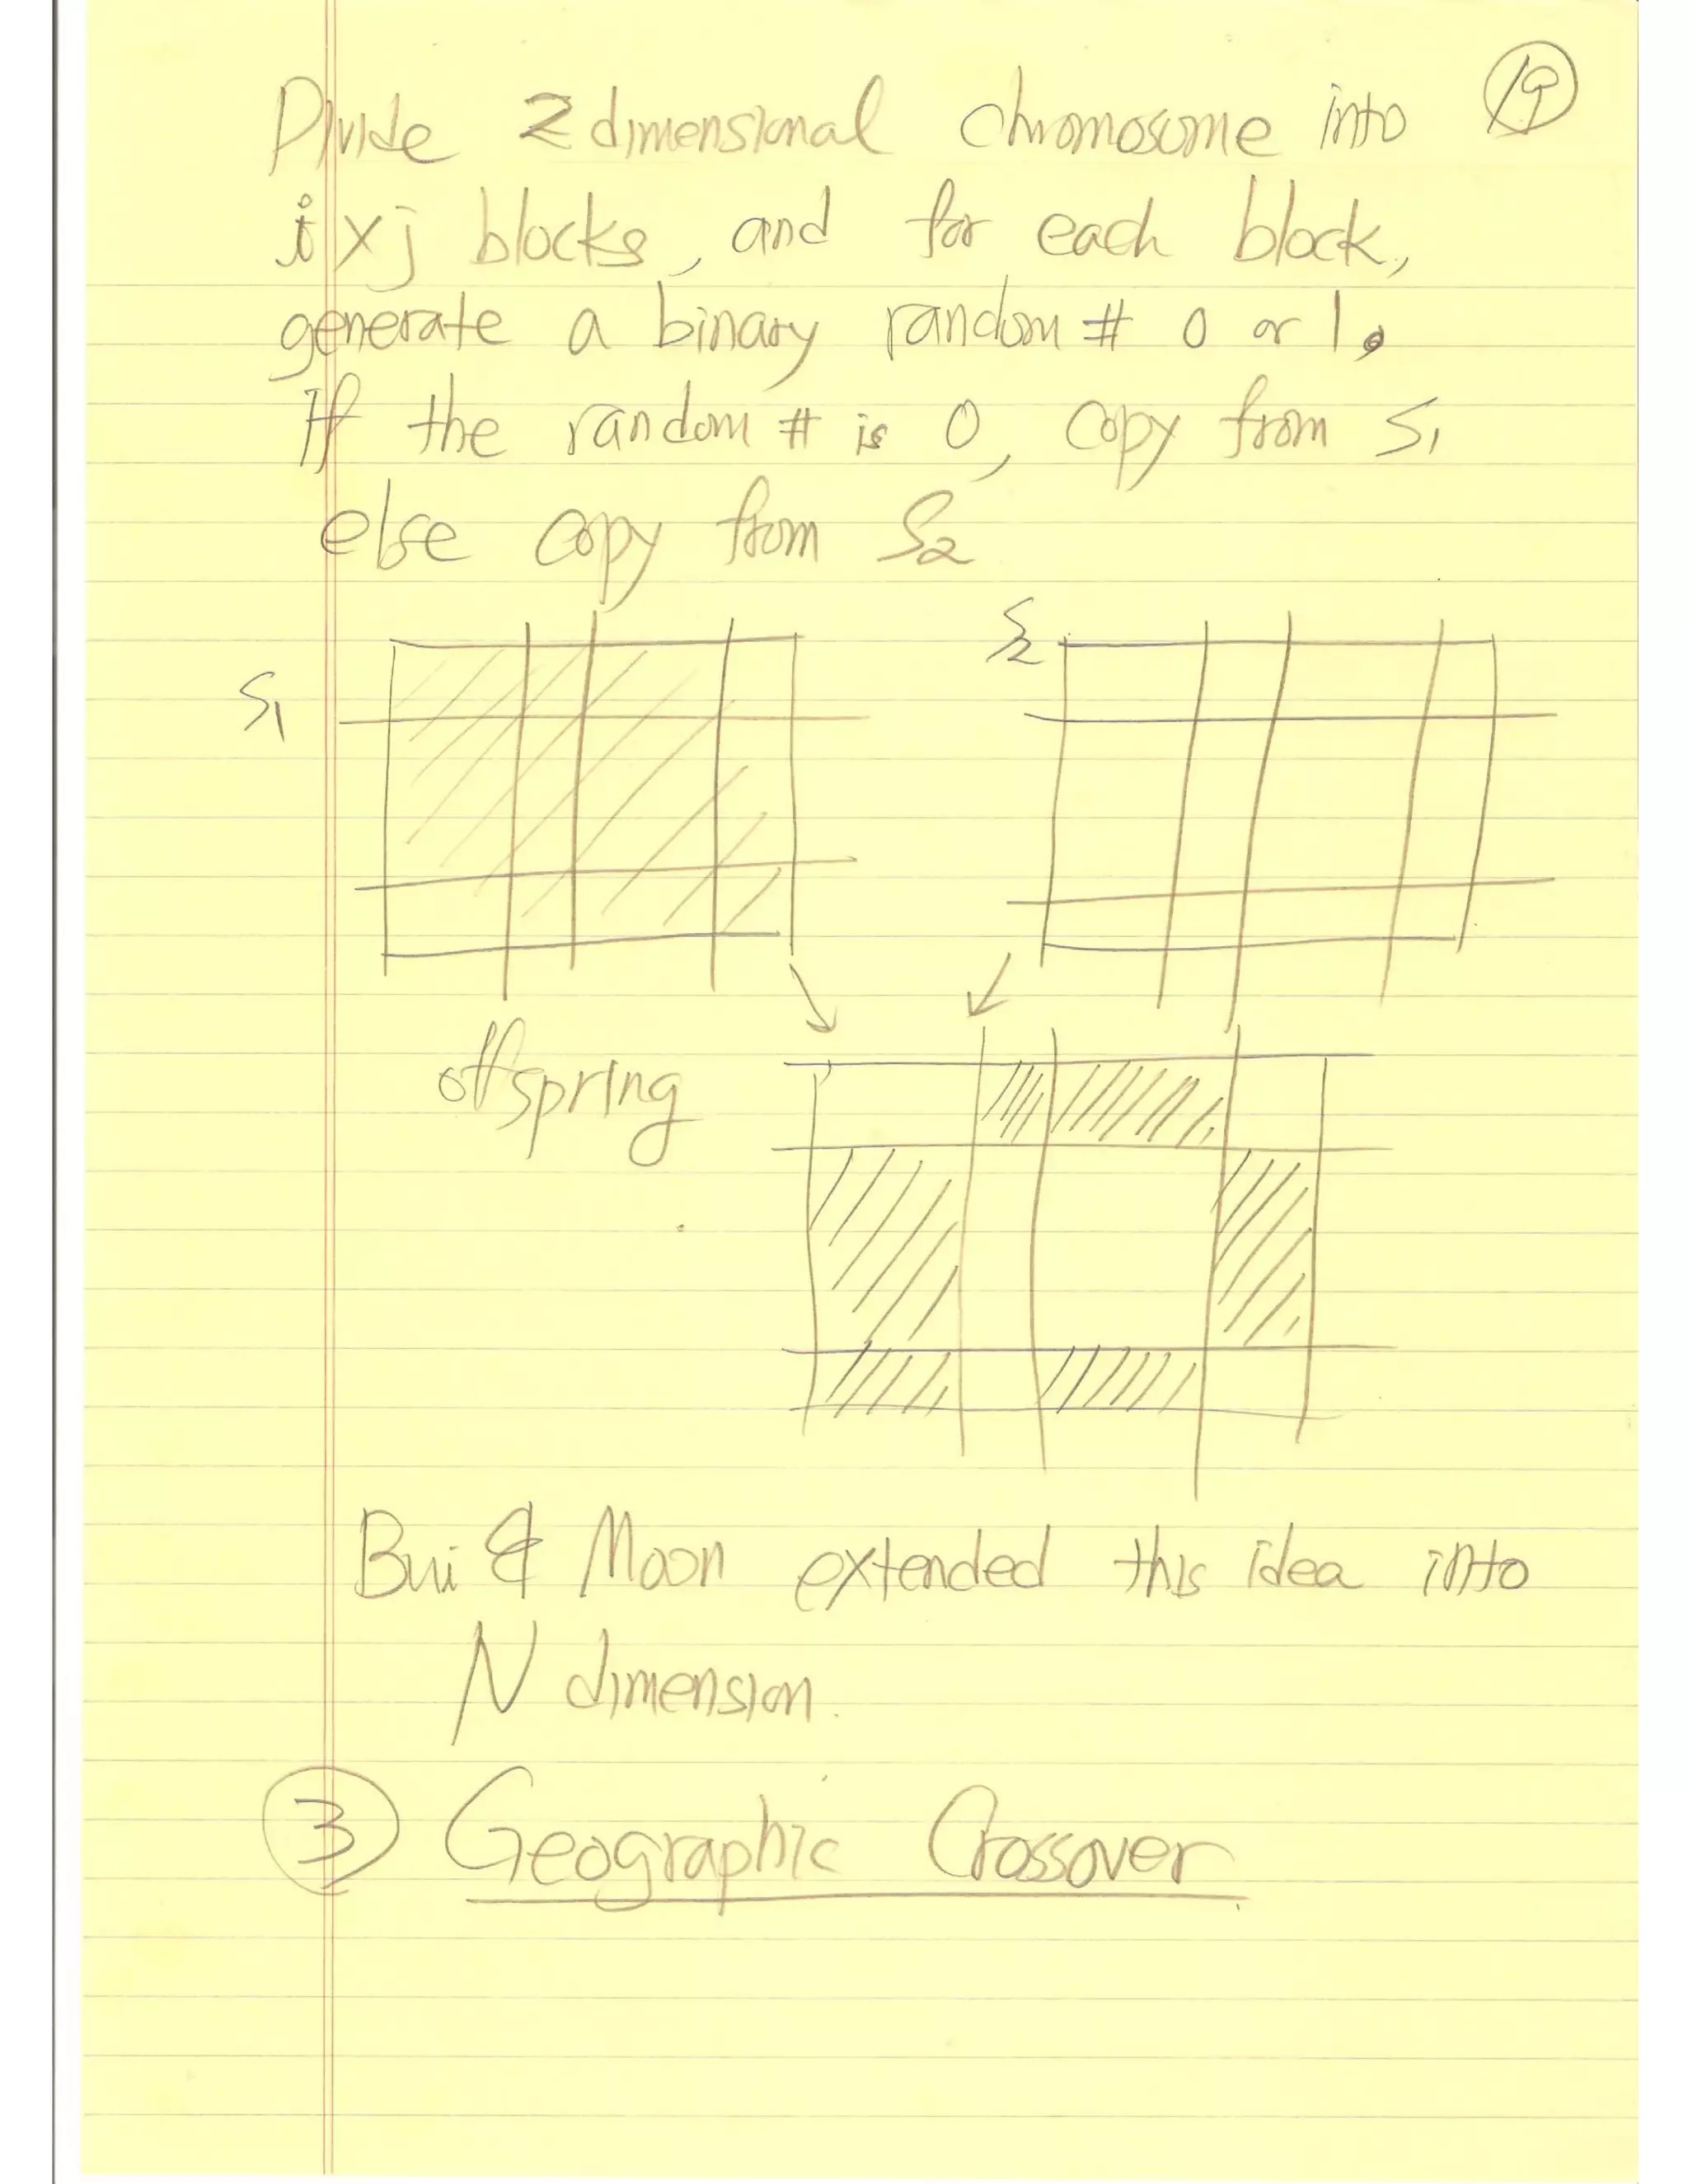 19
Divide 2 dimensional chromosome into
i x j blocks, and for each block,
generate a binary random # 0 or 1.
If the random # is 0, copy from S1
else copy from S2
S1
S2
offspring
Bui & Moon extended this idea into
N dimension.
3 Geographic Crossover